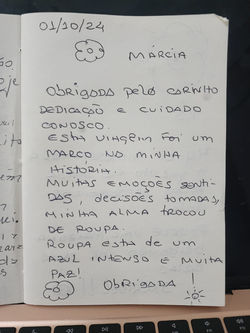 01/10/24
MÁRCIA
OBRIGADA PELO CARINHO
DEDICAÇÃO E CUIDADO
CONOSCO.
ESTA VIAGEM FOI UM
MARCO NA MINHA
HISTÓRIA.
MUITAS EMOÇÕES SENTI-
DAS, DECISÕES TOMADAS,
MINHA ALMA TROCOU
DE ROUPA.
ROUPA ESTA DE UM
AZUL INTENSO E MUITA
PAZ!
OBRIGADA!